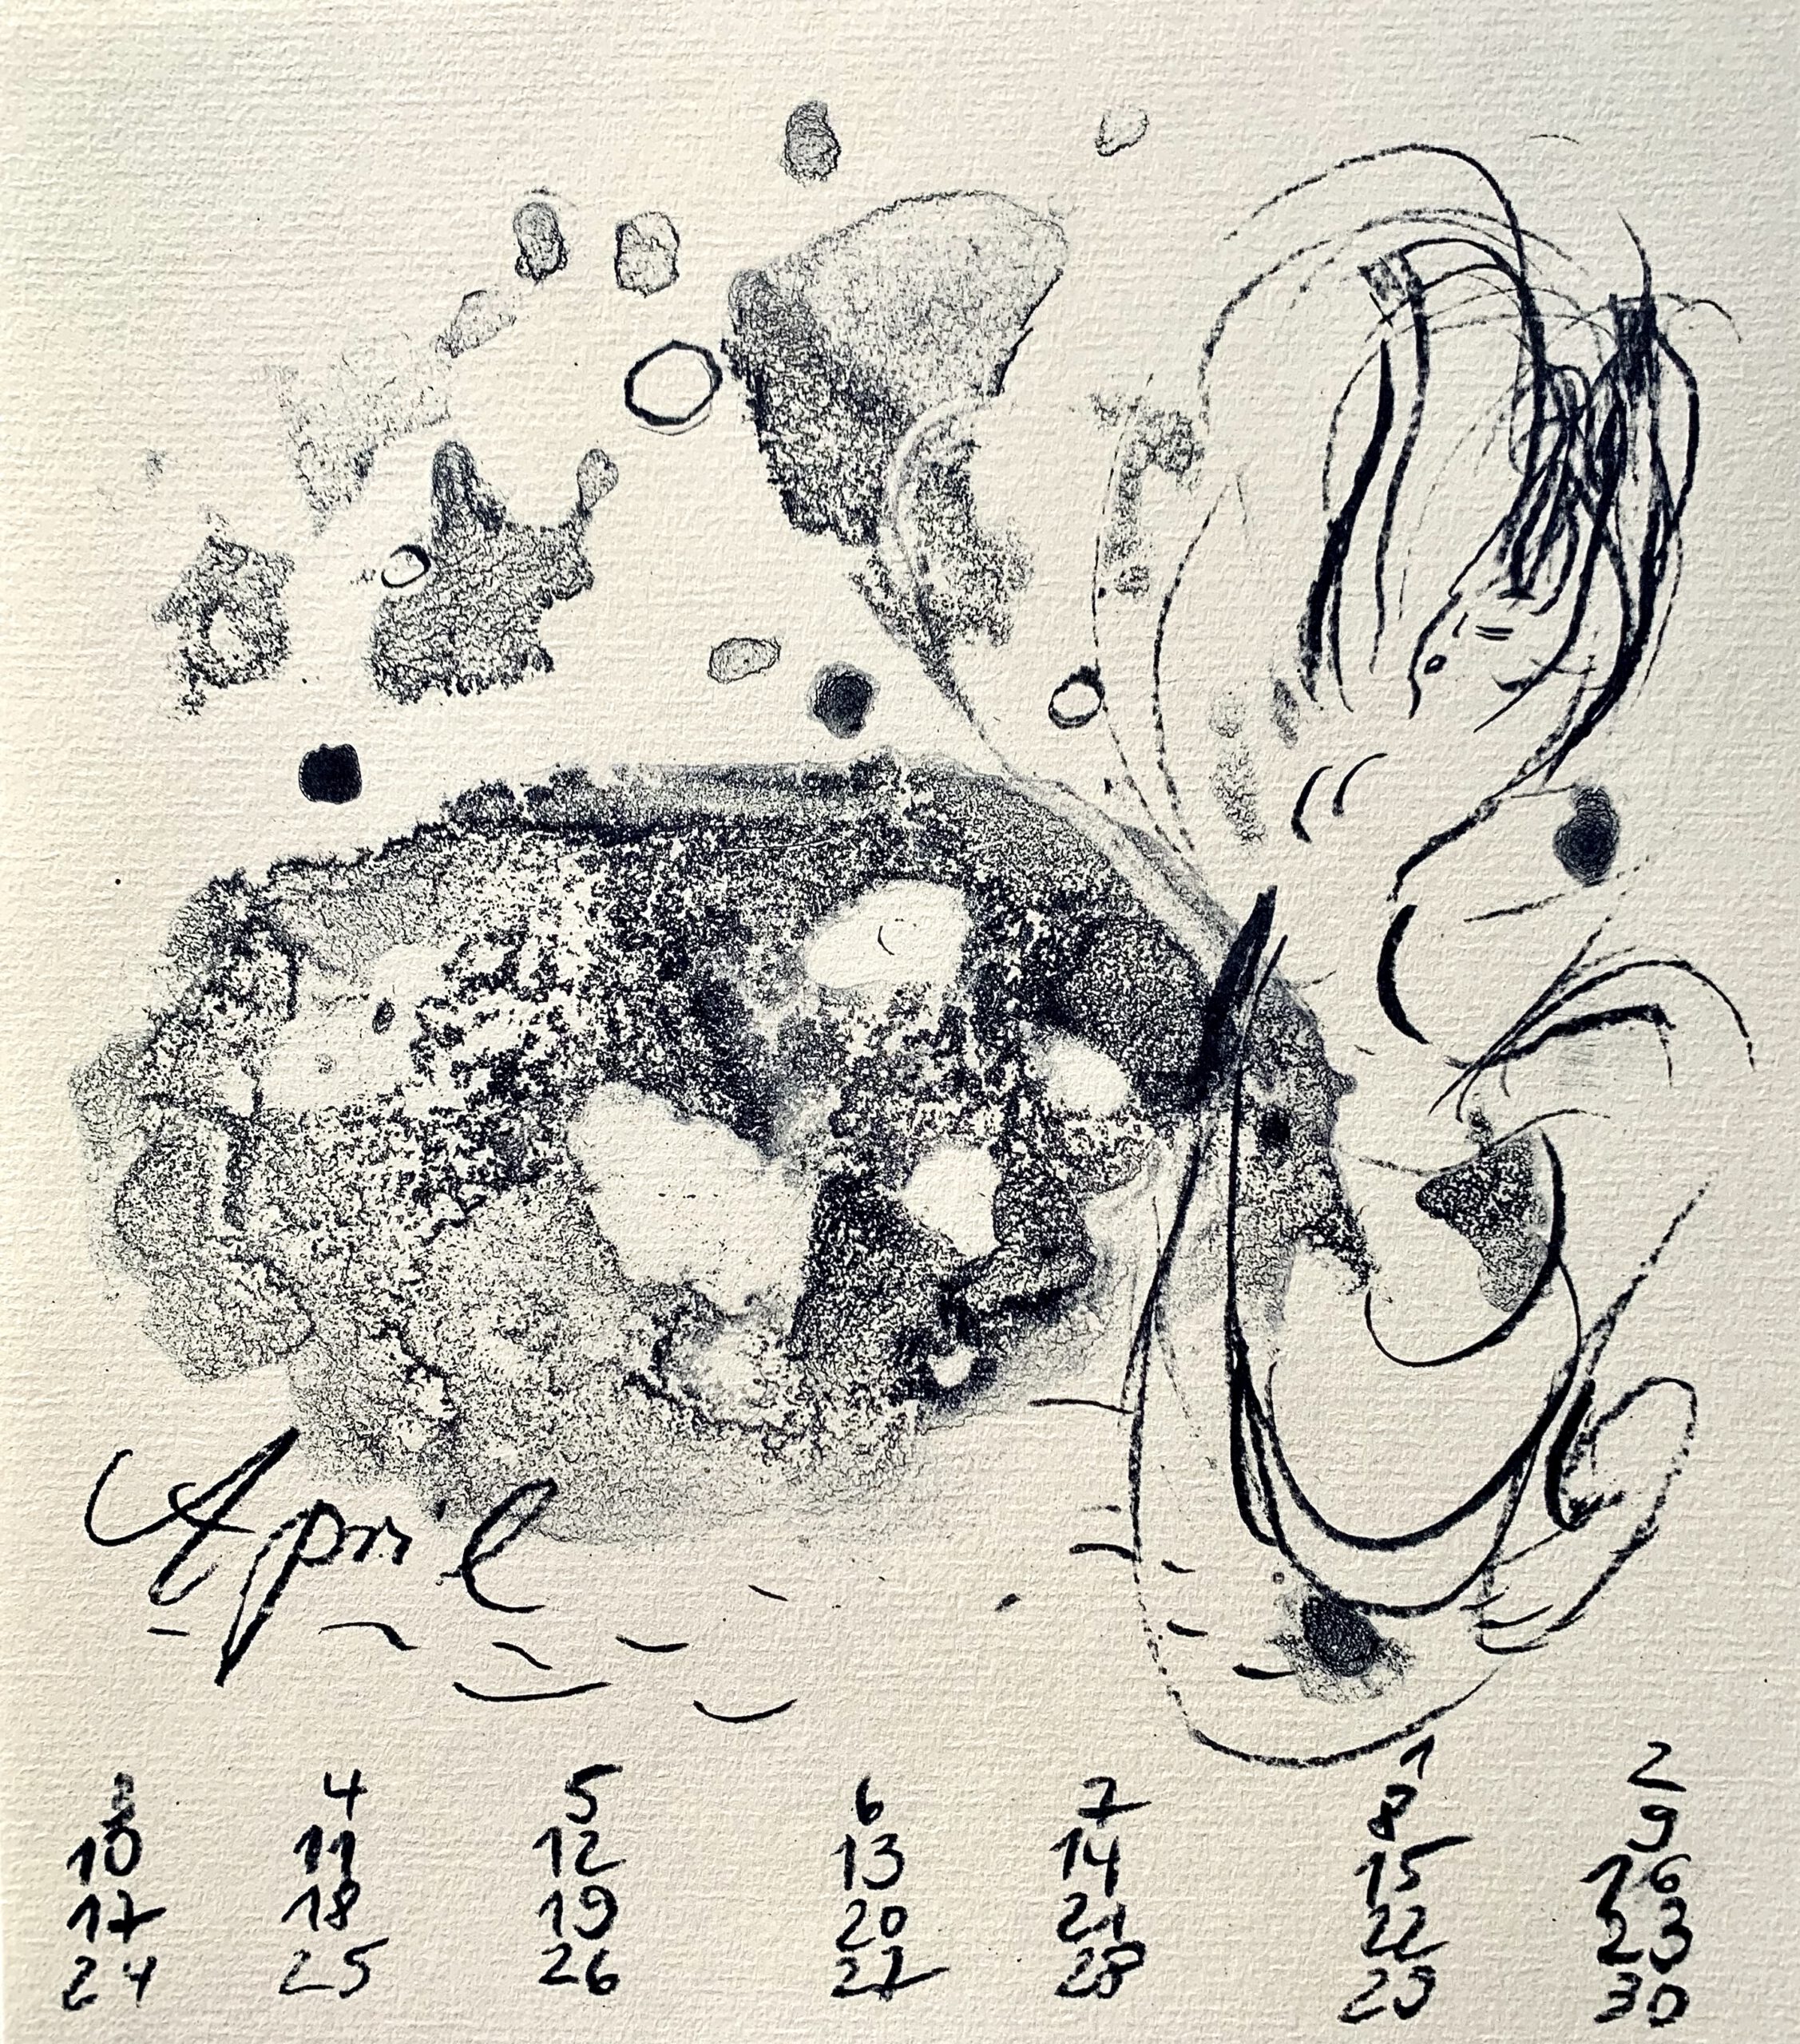 April
1 2
3 4 5 6 7 8 9
10 11 12 13 14 15 16
17 18 19 20 21 22 23
24 25 26 27 28 29 30